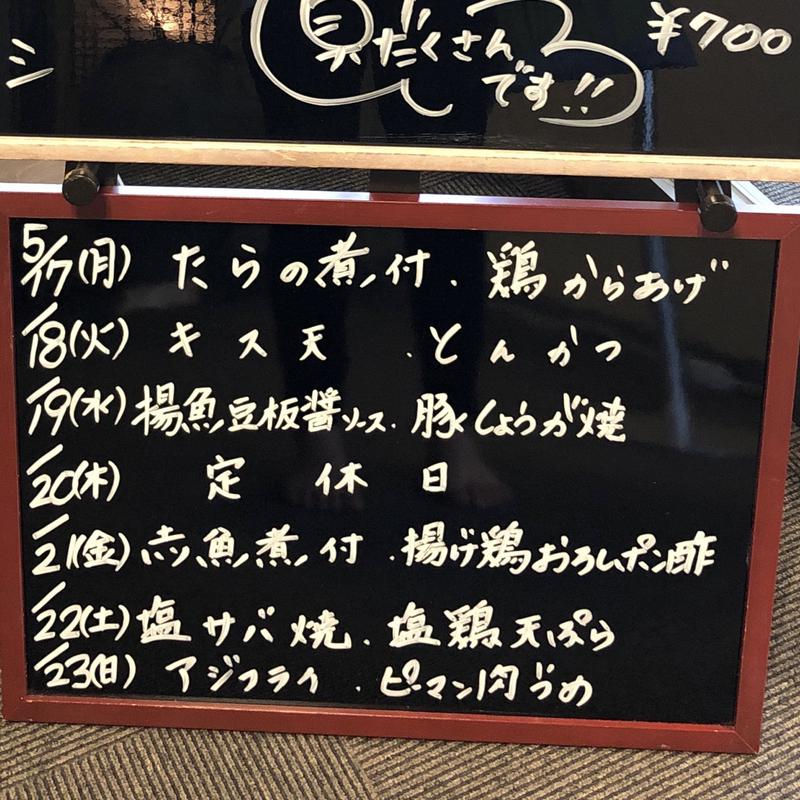 具だくさん
¥700
シ
です!!
5/17(月) たらの煮付.鶏からあげ
/18(火) キス天.とんかつ
/19(水) 揚魚豆板醤ソース.豚しょうが焼
/20(木) 定休日
/21(金) 赤魚煮付.揚げ鶏おろしポン酢
/22(土) 塩サバ焼.塩鶏天ぷら
/23(日) アジフライ.ピーマン肉づめ